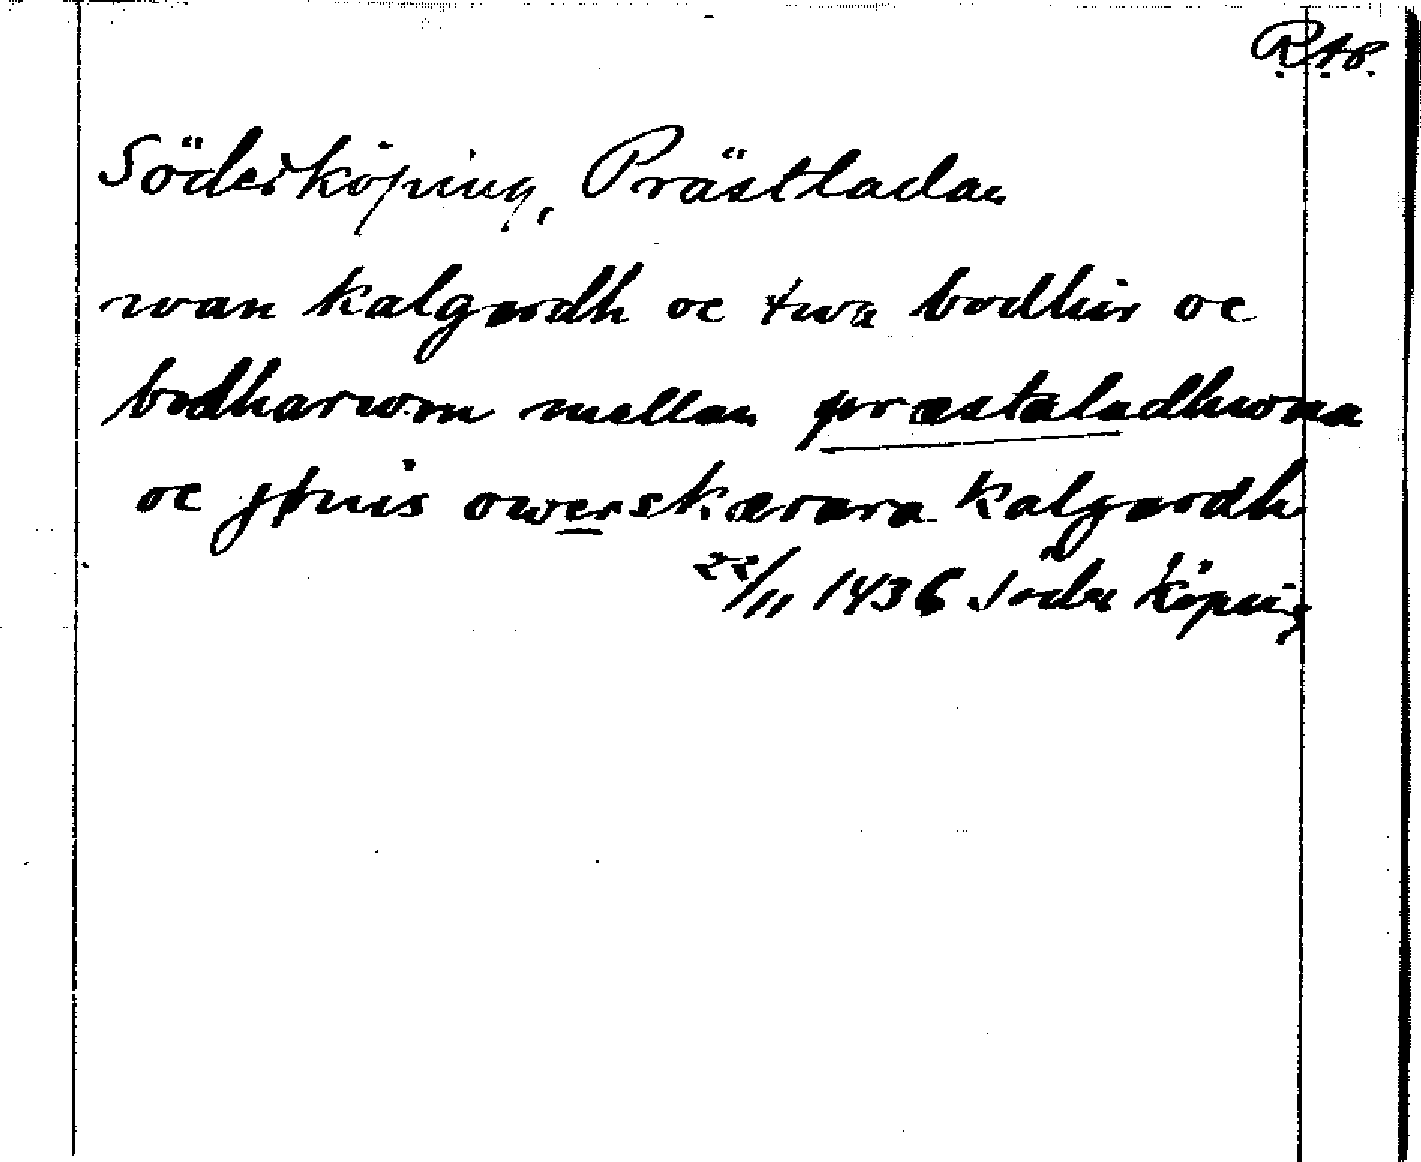 R.A.P.
Söderköping, Prästladan
wan kalgardh oc twa bodhir oc
bodharwm mellan præstaladhwna
oc jønis owerskærara kalgardh
22/11 1436 Söderköping